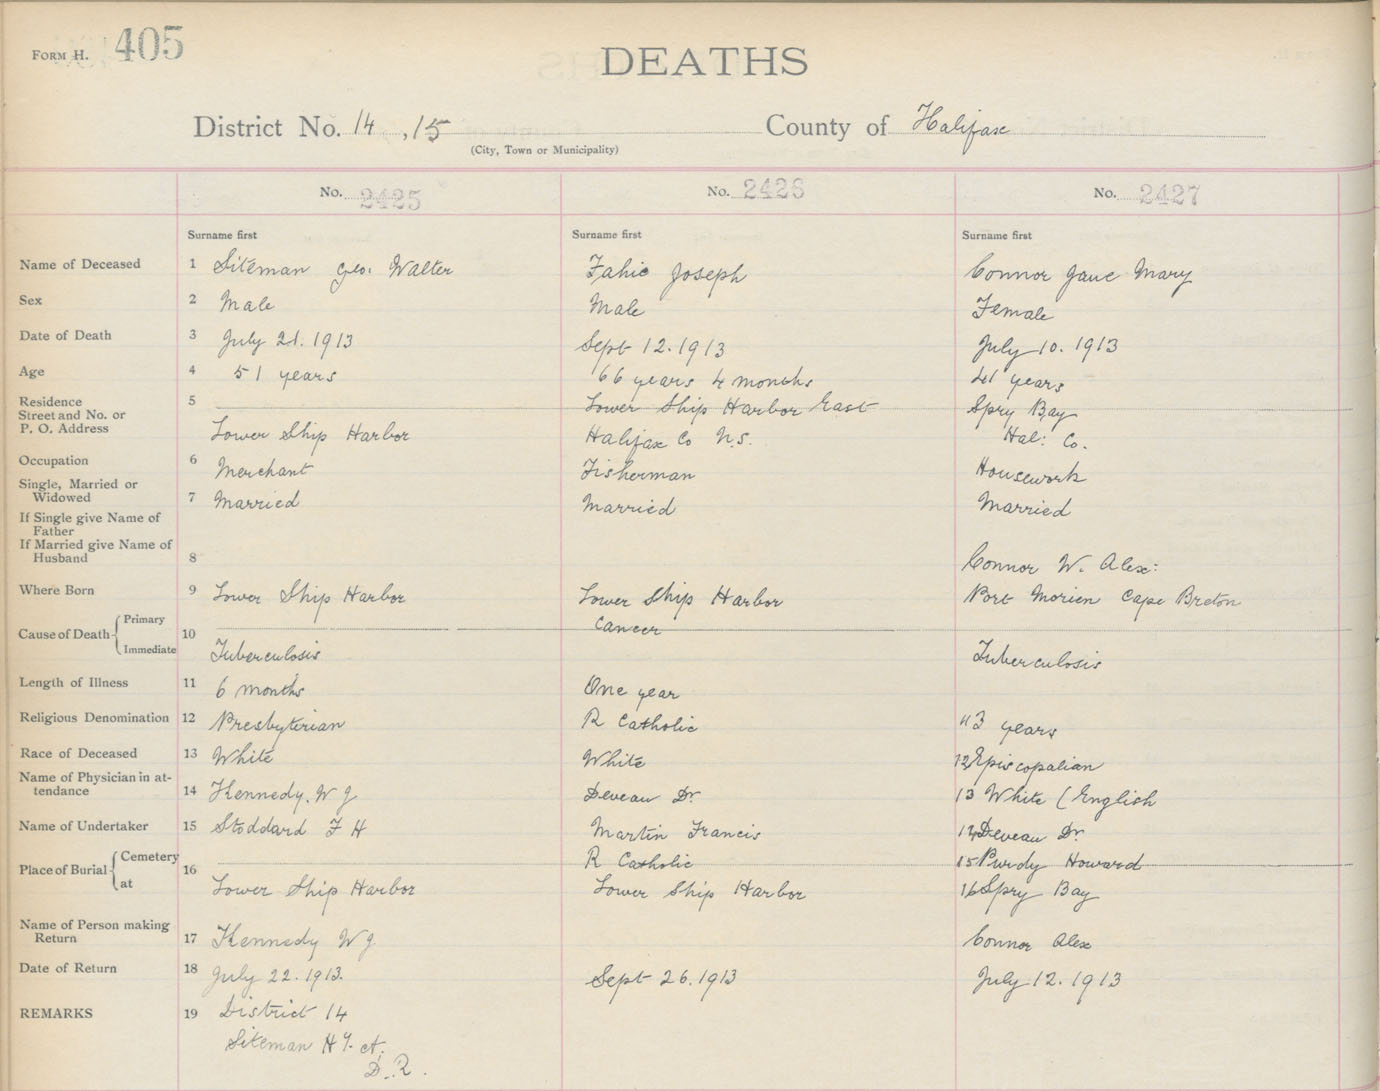 FORM H. 405
DEATHS
District No. 14, 15 County of Halifax
(City, Town or Municipality)
No. 2425 No. 2426 No. 2427
Surname first Surname first Surname first
Name of Deceased 1 Siteman Geo. Walter Fahie Joseph Connor Jane Mary
Sex 2 Male Male Female
Date of Death 3 July 21. 1913 Sept 12. 1913 July 10. 1913
Age 4 51 years 66 years 4 months 41 years
Residence 5 Lower Ship Harbor East Spry Bay
Street and No. or
P. O. Address Lower Ship Harbor Halifax Co N.S. Hal: Co.
Occupation 6 Merchant Fisherman Housework
Single, Married or
Widowed 7 Married Married Married
If Single give Name of
Father
If Married give Name of
Husband 8 Connor W. Alex:
Where Born 9 Lower Ship Harbor Lower Ship Harbor Port Morien Cape Breton
Cause of Death Primary 10 Cancer
Immediate Tuberculosis Tuberculosis
Length of Illness 11 6 months One year
Religious Denomination 12 Presbyterian R Catholic 3 years
Race of Deceased 13 White White 12 Episcopalian
Name of Physician in at-
tendance 14 Kennedy. W J Deveau Dr. 13 White (English
Name of Undertaker 15 Stoddard F H Martin Francis 14 Deveau Dr.
Place of Burial Cemetery 16 R Catholic 15 Purdy Howard
at Lower Ship Harbor Lower Ship Harbor 16 Spry Bay
Name of Person making
Return 17 Kennedy W J. Connor Alex
Date of Return 18 July 22. 1913. Sept 26. 1913 July 12. 1913
REMARKS 19 District 14
Siteman H
D. R.